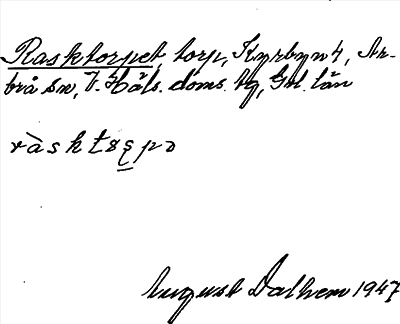 Rasktorpet, torp, Kyrbyn 4, Ar-
brå sn, V. Häls. doms. tg, Gvl. län
ràsktɷrpə
August Dalhem 1947